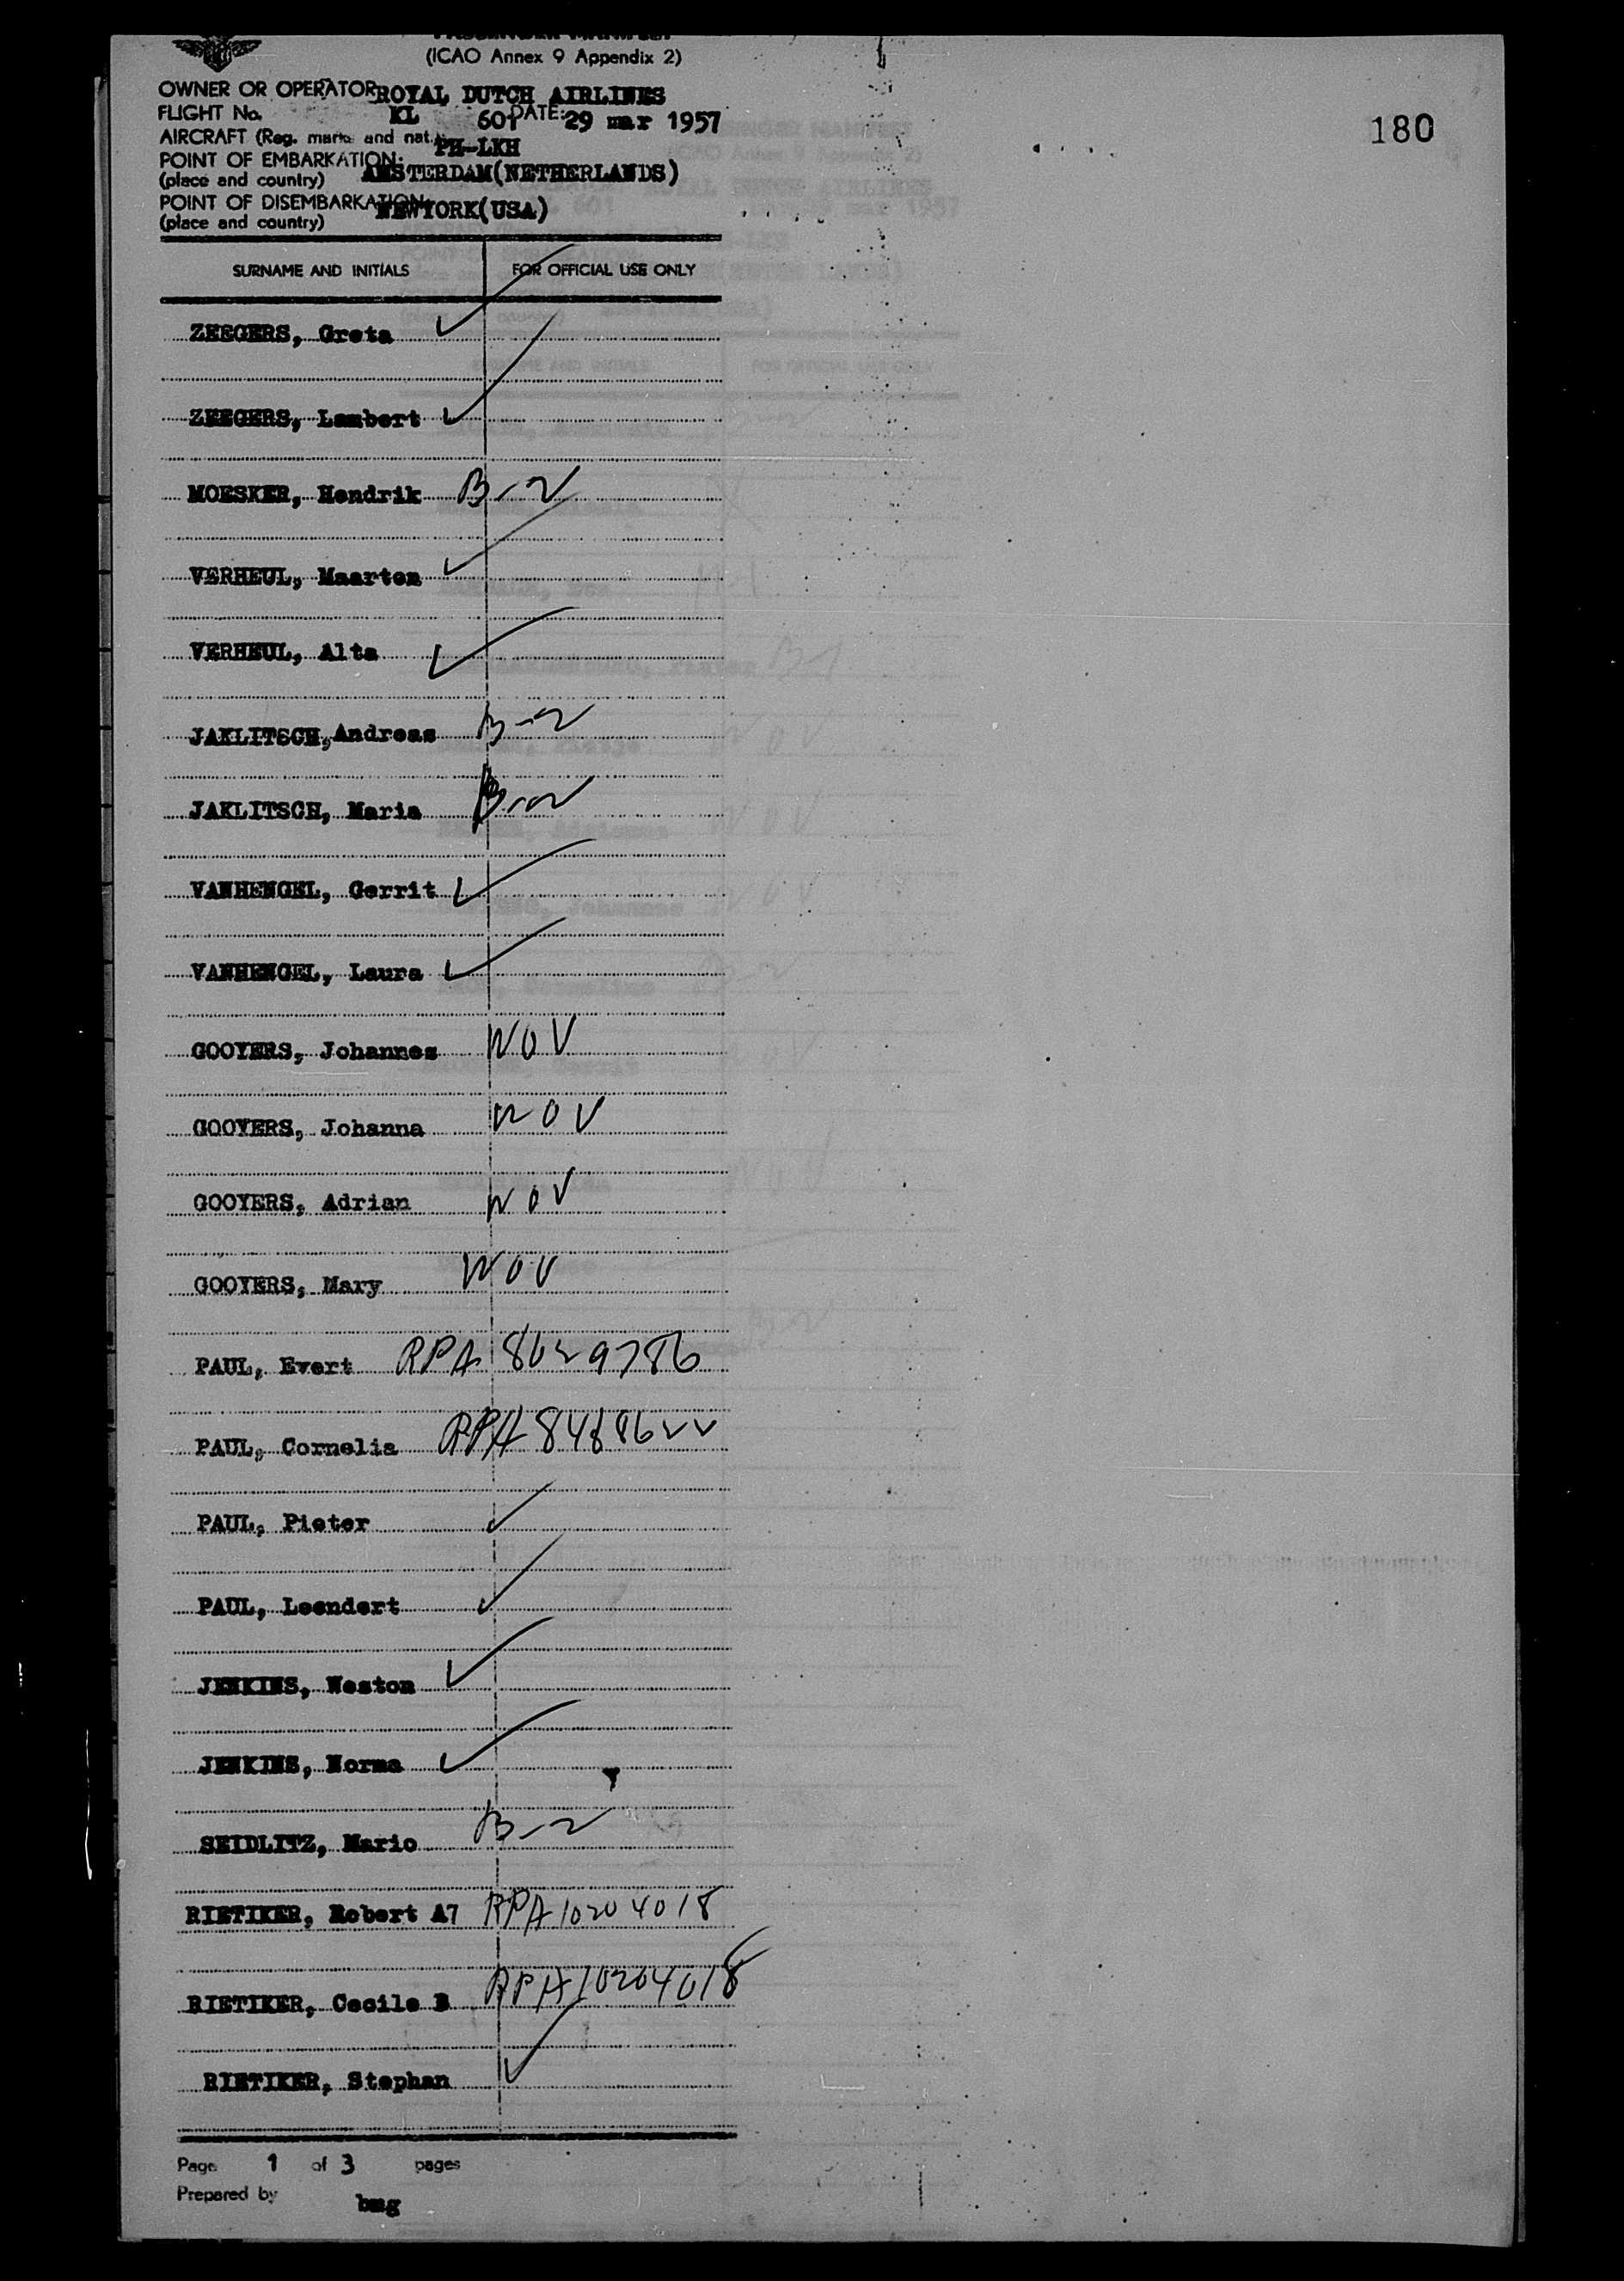 PASSENGER MANIFEST
(ICAO Annex 9 Appendix 2)
OWNER OR OPERATOR ROYAL DUTCH AIRLINES
FLIGHT No. KL 601 DATE: 29 mar 1957
180
AIRCRAFT (Reg. marks and nat.) PH-LKH
POINT OF EMBARKATION: AMSTERDAM(NETHERLANDS)
(place and country)
POINT OF DISEMBARKATION: NEWYORK(USA)
(place and country)
SURNAME AND INITIALS FOR OFFICIAL USE ONLY
ZEEGERS, Greta ✓
ZEEGERS, Lambert ✓
MOESKER, Hendrik B-2
VERHEUL, Maarten ✓
VERHEUL, Alta ✓
JAKLITSCH, Andreas B-2
JAKLITSCH, Maria B-2
VANHENGEL, Gerrit ✓
VANHENGEL, Laura ✓
GOOYERS, Johannes NOV
GOOYERS, Johanna NOV
GOOYERS, Adrian NOV
GOOYERS, Mary NOV
PAUL, Evert RPA 8029786
PAUL, Cornelia RPA 8488622
PAUL, Pieter ✓
PAUL, Leendert ✓
JENKINS, Weston ✓
JENKINS, Norma ✓
SEIDLITZ, Mario B-2
RIETIKER, Robert A7 RPA 10204018
RIETIKER, Cecile B RPA 10204018
RIETIKER, Stephan ✓
Page 1 of 3 pages
Prepared by bmg